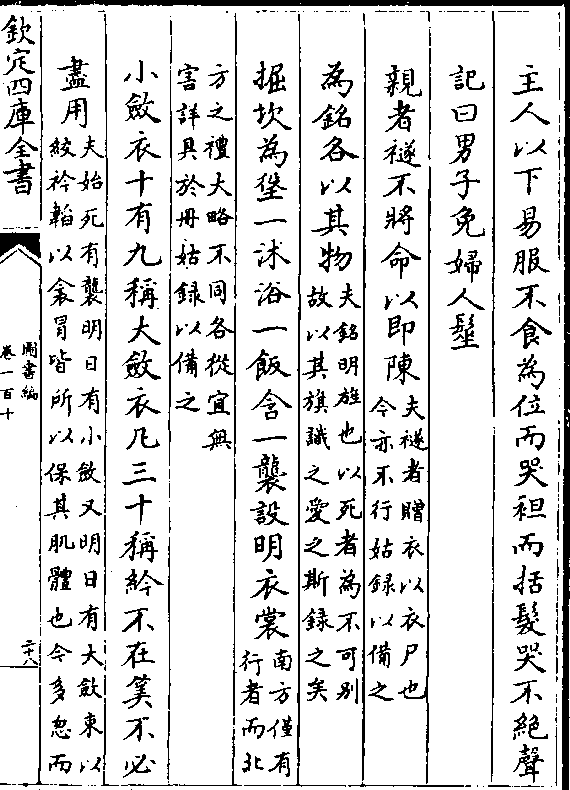 主人以下易服不食為位而哭袒而括髮哭不絕聲
記曰男子免婦人髽
親者襚不將命以即陳夫襚者贈衣以衣尸也
今亦不行姑録以備之
為銘各以其物夫銘明旌也以死者為不可别
故以其旗識之愛之斯録之矣
掘坎為垼一沭浴一飯含一襲設明衣裳南方僅有
行者而北
方之禮大略不同各從宜無
害詳具於冊姑録以備之
小斂衣十有九稱大斂衣凡三十稱紟不在筭不必
盡用夫始死有襲明日有小斂又明日有大斂束以
絞衿韜以衾冒皆所以保其肌體也今多忽而
欽定四庫全書
圖書編
卷一百十
二十八